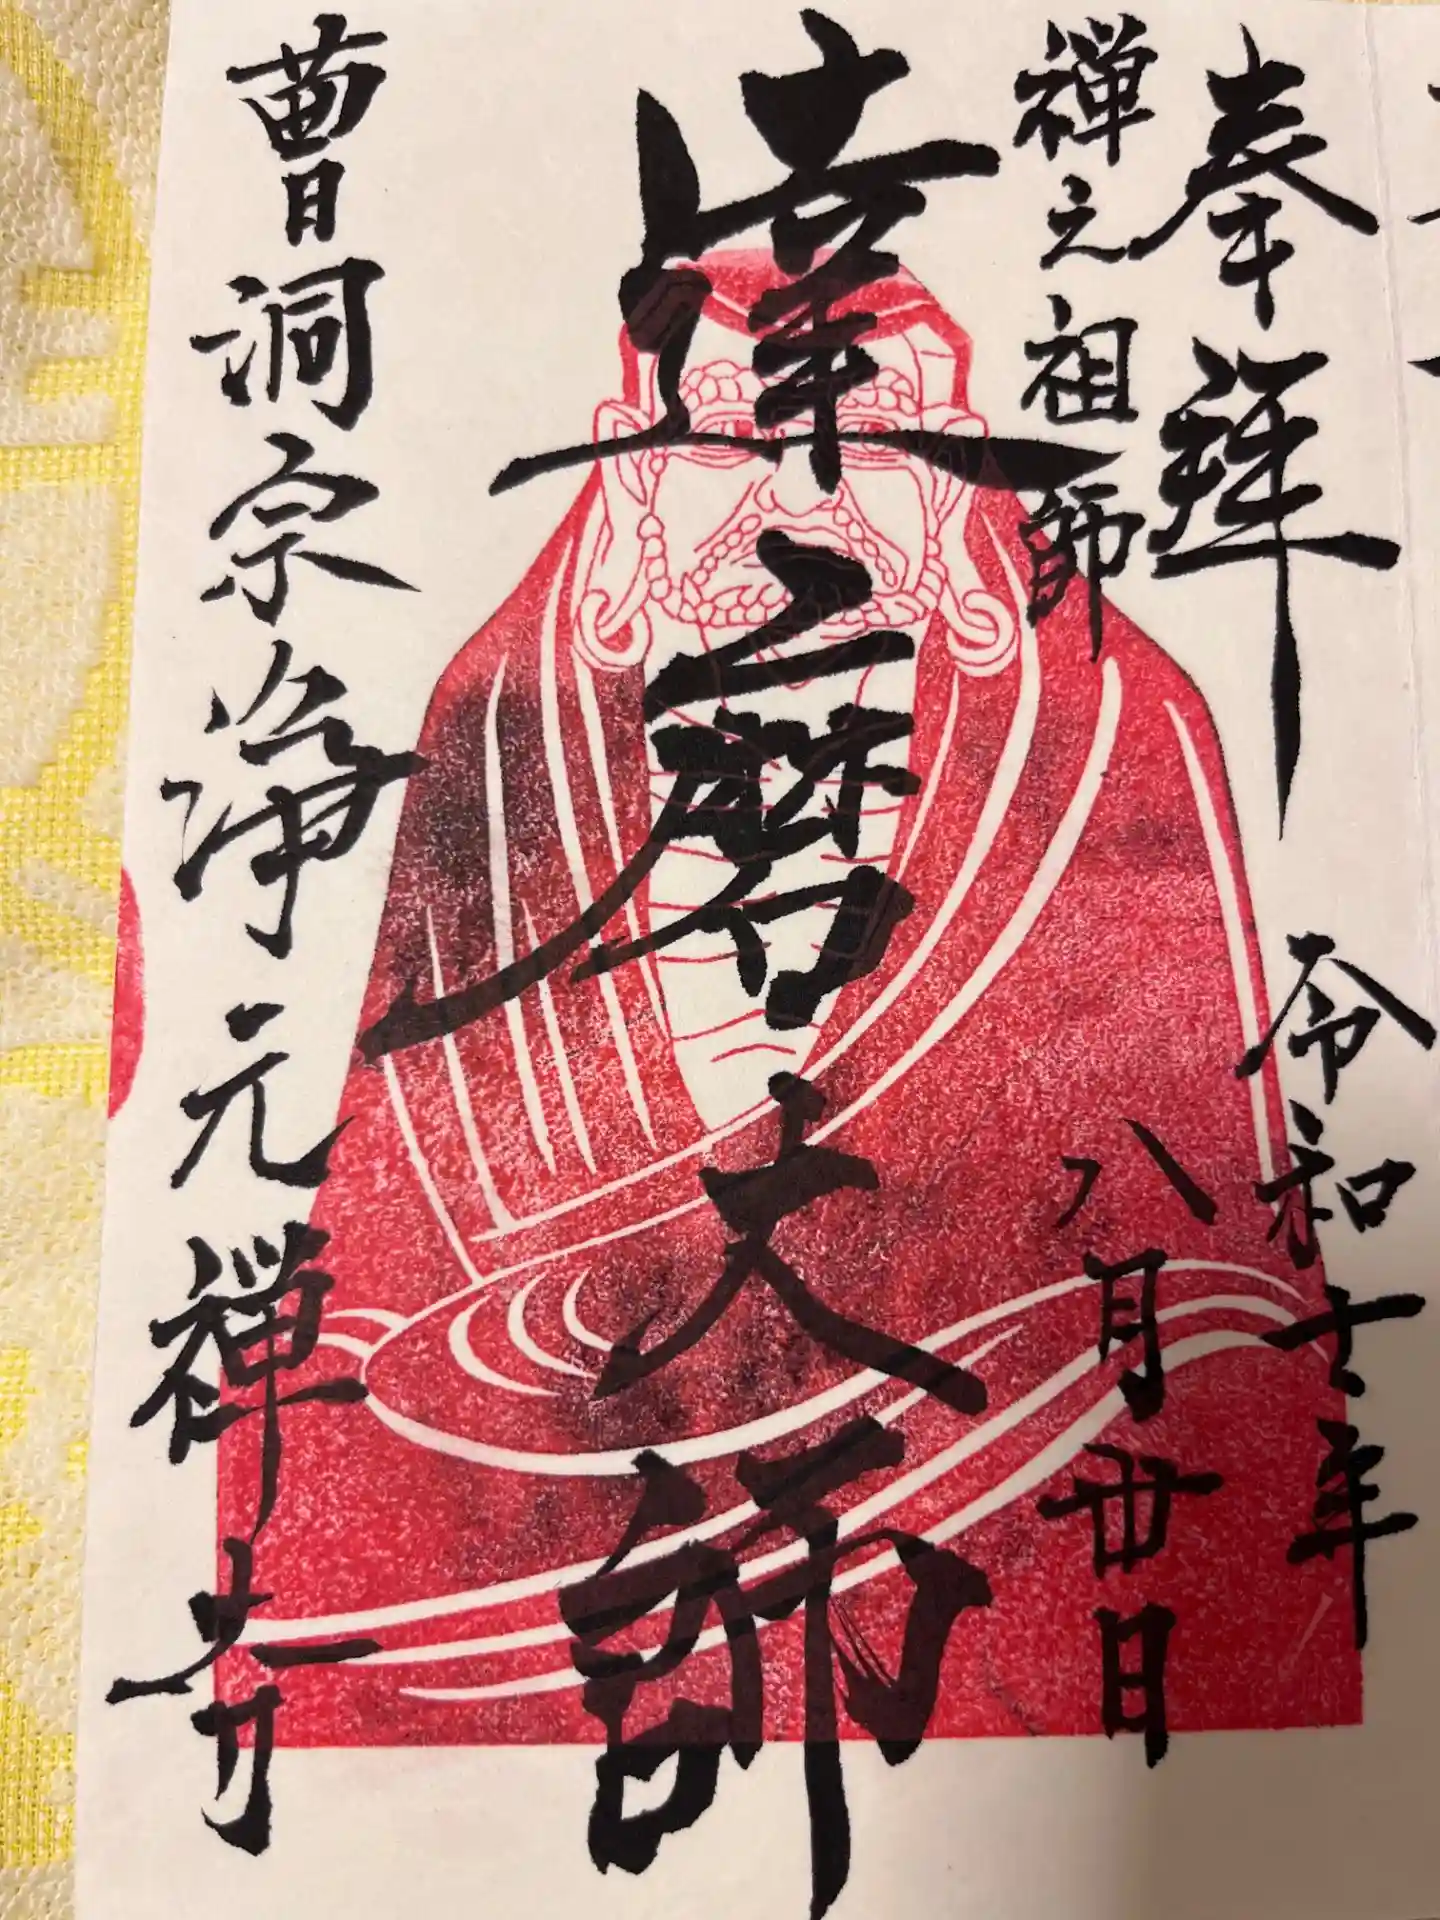 奉拝
令和七年
禅之祖師
八月廿日
達磨大師
曹洞宗浄元禅寺